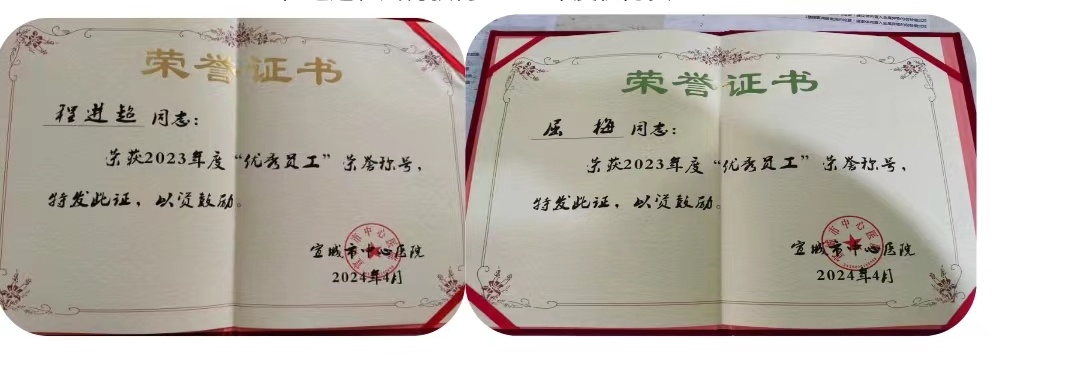 荣誉证书
程进超 同志：
荣获2023年度“优秀员工”荣誉称号，
特发此证，以资鼓励。
宣城市中心医院
2024年4月
荣誉证书
屈梅 同志：
荣获2023年度“优秀员工”荣誉称号，
特发此证，以资鼓励。
宣城市中心医院
2024年4月